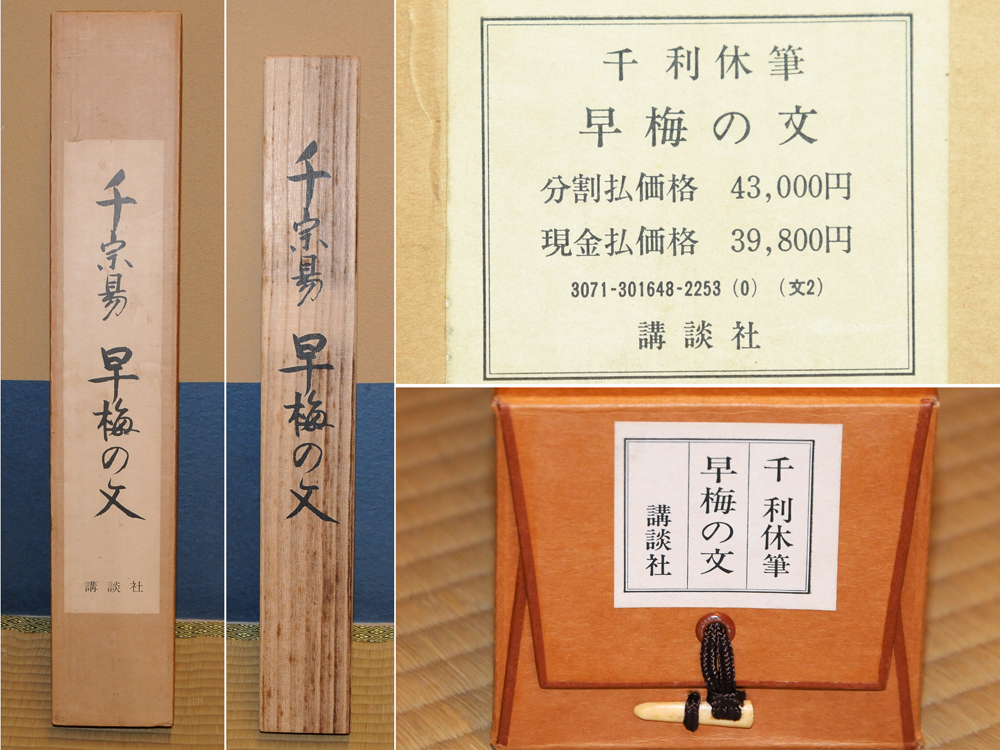 千宗易 早梅の文
講談社
千宗易 早梅の文
千利休筆
早梅の文
分割払価格 43,000円
現金払価格 39,800円
3071-301648-2253 (0) (文2)
講談社
千利休筆
早梅の文
講談社